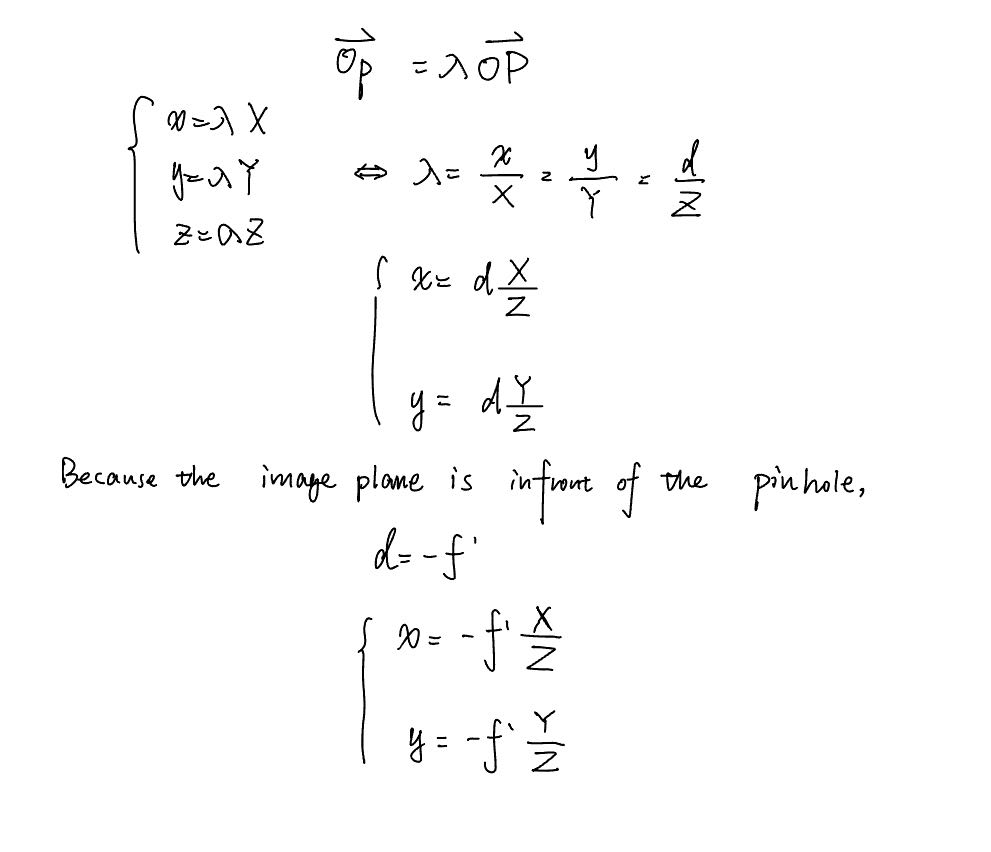 Op = λ OP
x = λ X
y = λ Y ⇔ λ = x/X = y/Y = d/Z
z = λ Z
x = d X/Z
y = d Y/Z
Because the image plane is infront of the pinhole,
d = - f'
x = - f' X/Z
y = - f' Y/Z